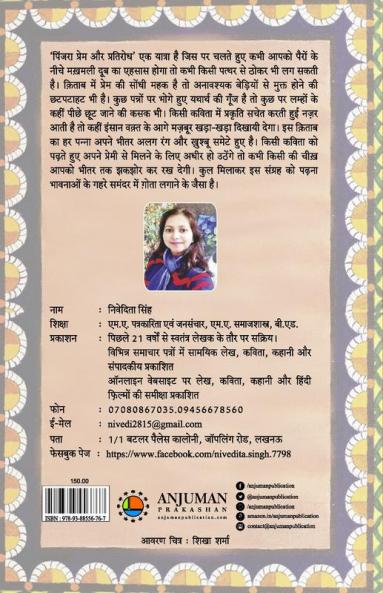 'पिंजरा प्रेम और प्रतिरोध' एक यात्रा है जिस पर चलते हुए कभी आपको पैरों के
नीचे मख़मली दूब का एहसास होगा तो कभी किसी पत्थर से ठोकर भी लग सकती
है। क़िताब में प्रेम की सोंधी महक है तो अनावश्यक बेड़ियों से मुक्त होने की
छटपटाहट भी है। कुछ पन्नों पर भोगे हुए यथार्थ की गूँज है तो कुछ पर लम्हों के
कहीं पीछे छूट जाने की कसक भी। किसी कविता में प्रकृति सचेत करती हुई नज़र
आती है तो कहीं इंसान वक़्त के आगे मज़बूर खड़ा-खड़ा दिखायी देगा। इस क़िताब
का हर पन्ना अपने भीतर अलग रंग और ख़ुश्बू समेटे हुए है। किसी कविता को
पढ़ते हुए अपने प्रेमी से मिलने के लिए अधीर हो उठेंगे तो कभी किसी की चीख़
आपको भीतर तक झकझोर कर रख देगी। कुल मिलाकर इस संग्रह को पढ़ना
भावनाओं के गहरे समंदर में ग़ोता लगाने के जैसा है।
नाम : निवेदिता सिंह
शिक्षा : एम.ए. पत्रकारिता एवं जनसंचार, एम.ए. समाजशास्त्र, बी.एड.
प्रकाशन : पिछले 21 वर्षों से स्वतंत्र लेखक के तौर पर सक्रिय।
विभिन्न समाचार पत्रों में सामयिक लेख, कविता, कहानी और
संपादकीय प्रकाशित
ऑनलाइन वेबसाइट पर लेख, कविता, कहानी और हिंदी
फ़िल्मों की समीक्षा प्रकाशित
फोन : 07080867035.09456678560
ई-मेल : nivedi2815@gmail.com
पता : 1/1 बटलर पैलेस कालोनी, जॉपलिंग रोड, लखनऊ
फेसबुक पेज : https://www.facebook.com/nivedita.singh.7798
150.00
ISBN : 978-93-88556-76-7
ANJUMAN
PRAKASHAN
anjumanpublication.com
/anjumanpublication
@anjumanpublication
/anjumanpublication
amazon.in/anjumanpublication
contact@anjumanpublication
आवरण चित्र : शिखा शर्मा